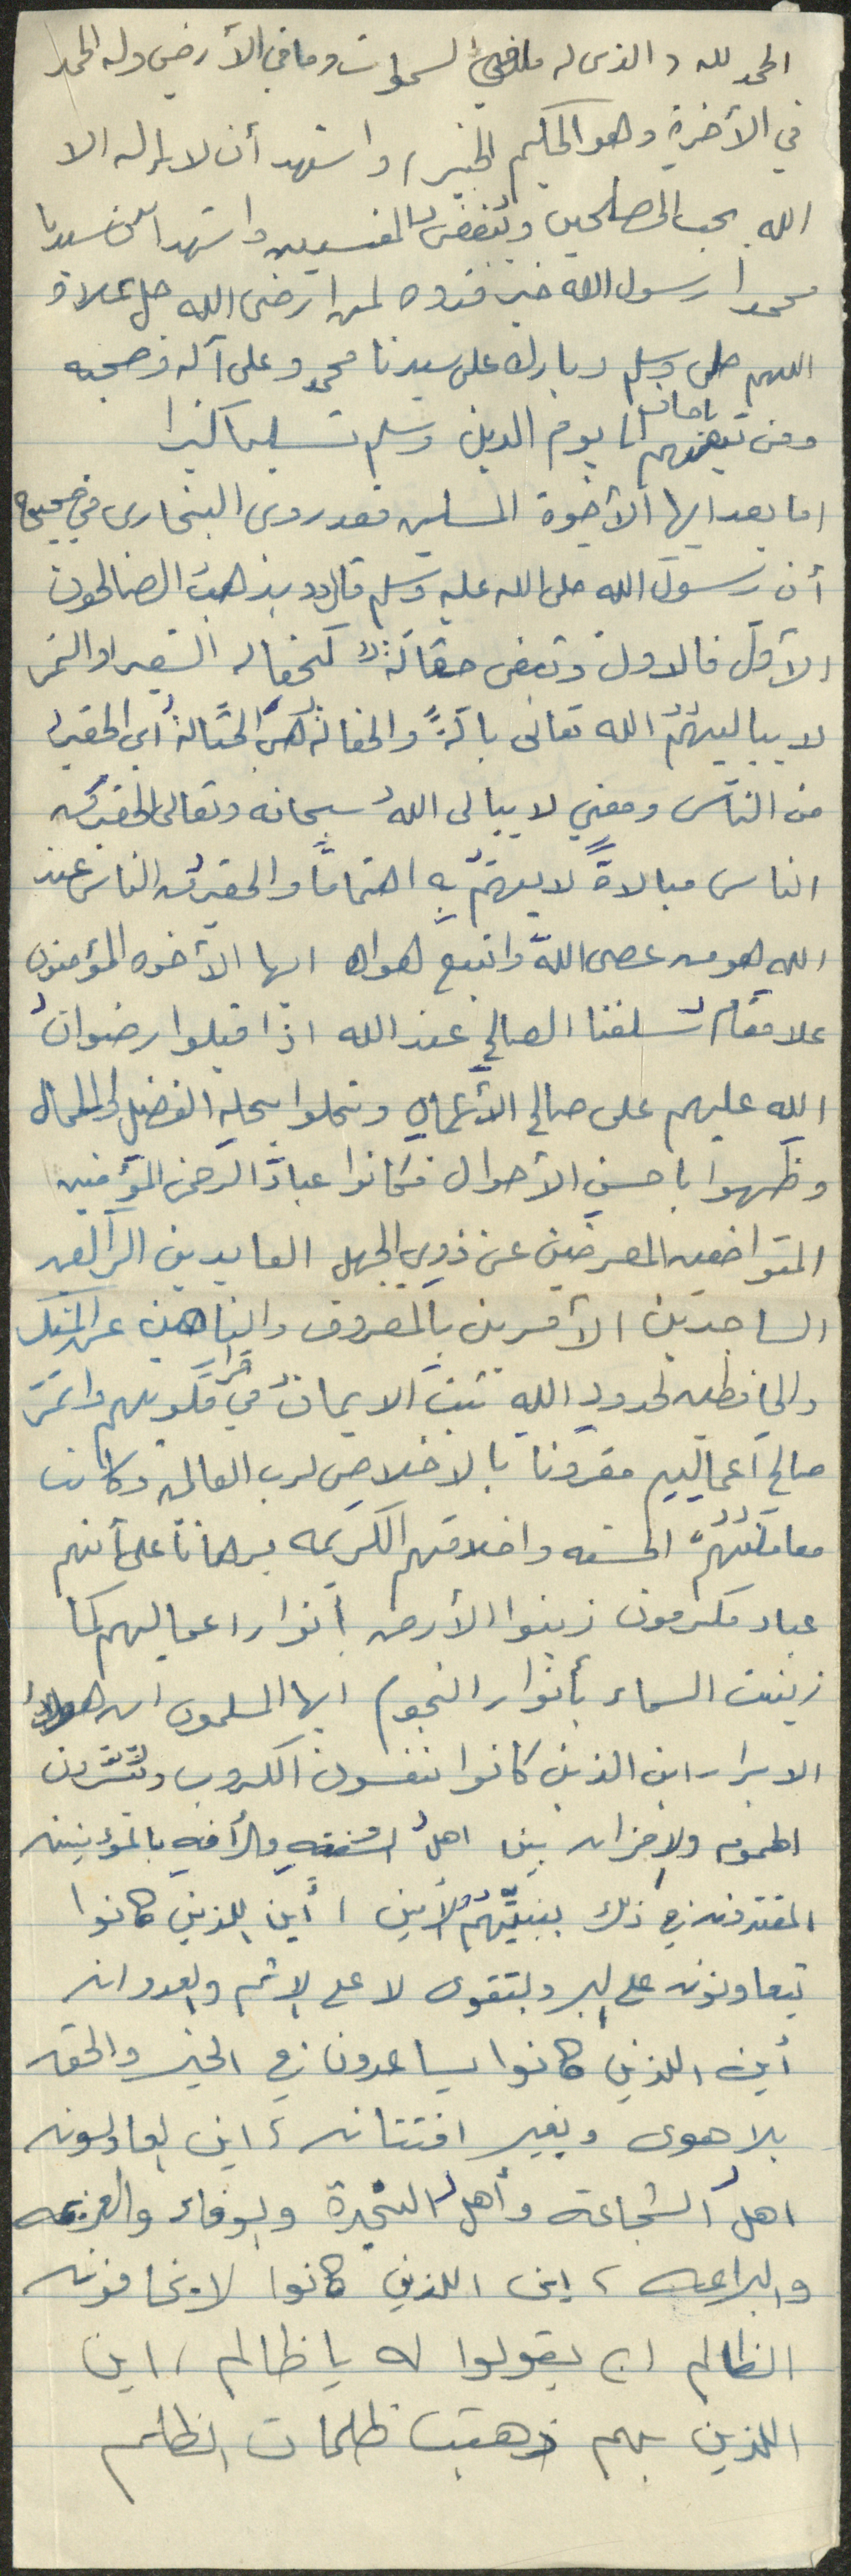 الحمد لله والذى له ما في السموات وما في الأرض وله الحمد
في الأخرة وهو الحكيم الخبير، واشهد أن لا إله الا
الله يحب الصلحين ويبغض المفسدين واشهد أن سيدنا
محمداً رسول الله خير قدوه لمن ارضى الله جل علاه
اللهم صلى وسلم وبارك على سيدنا محمد وعلى آله وصحبه
ومن تبعهم باحسان الى يوم الدين وسلم تسليما كثيرا
اما بعد ايها الأخوة المسلمين فقد روى البخارى في صحيحه
أن رسول الله صلى الله عليه وسلم قال يذهب الصالحون
الأول فالاول وتبقى حفالة كحفاله الشعير او التمر
لا يباليهم الله تعالى بالةً والحفالة هى الحثالة أي الحقير
من الناس ومعنى لا يبالى الله سبحانه وتعالى الحقير من
الناس مبالاةً لا يهتم به اهتماماً والحقير من الناس عند
الله هو من عصى الله واتبع هواه ايها الأخوه المؤمنون
علا مقام سلفنا الصالح عند الله اذا قبلوا رضوان
الله عليهم على صالح الأعمال وتحلوا بحلية الفضل والكمال
وظهروا باحسن الأحوال فكانوا عباد الرحمن المؤمنين
المتواضعين المعرضين عن ذوي الجهل العابدين الراكعين
الساجدين الأمرين بالمعروف والناهين عن المنكر
والحافظين لحدود الله ثبت الايمان في قرار قلوبهم واثمر
صالح أعماليهم مقرونا بالاخلاص لرب العالمين وكانت
معاملتهم الحسنه واخلاقهم الكريمه برهانا على أنهم
عباد مكرمون زينوا الأرض بأنوار اعماليهم كما
زينت السماء بأنوار النجوم ايها المسلمون اين هولاء
الابرار اين الذين كانوا ينفسون الكروب ويسترون
الهموم والاحزان بين اهل الشفقه والرأفه بالمؤمنين
المقتدون في ذلك بنبيّهم الأمين، أين اللذين كانوا
يتعاونون على البر والتقوى لا على الاثم والعدوان
أين اللذين كانوا يساعدون في الخير والحق
بلا هوى وبغير افتتان، اين العادلون
اهل الشجاعة وأهل النجدة والوفاء والعزيمه
والبراعه، اين اللذين كانوا لا يخافون
الظالم ان يقولوا له يا ظالم، اين
اللذين بهم ذهبت ظلمات الظلم